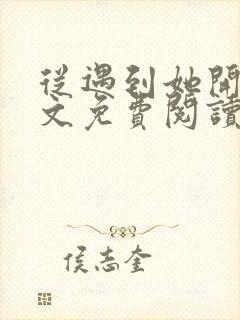 從遇到她開
文免費閱讀
侯志奎